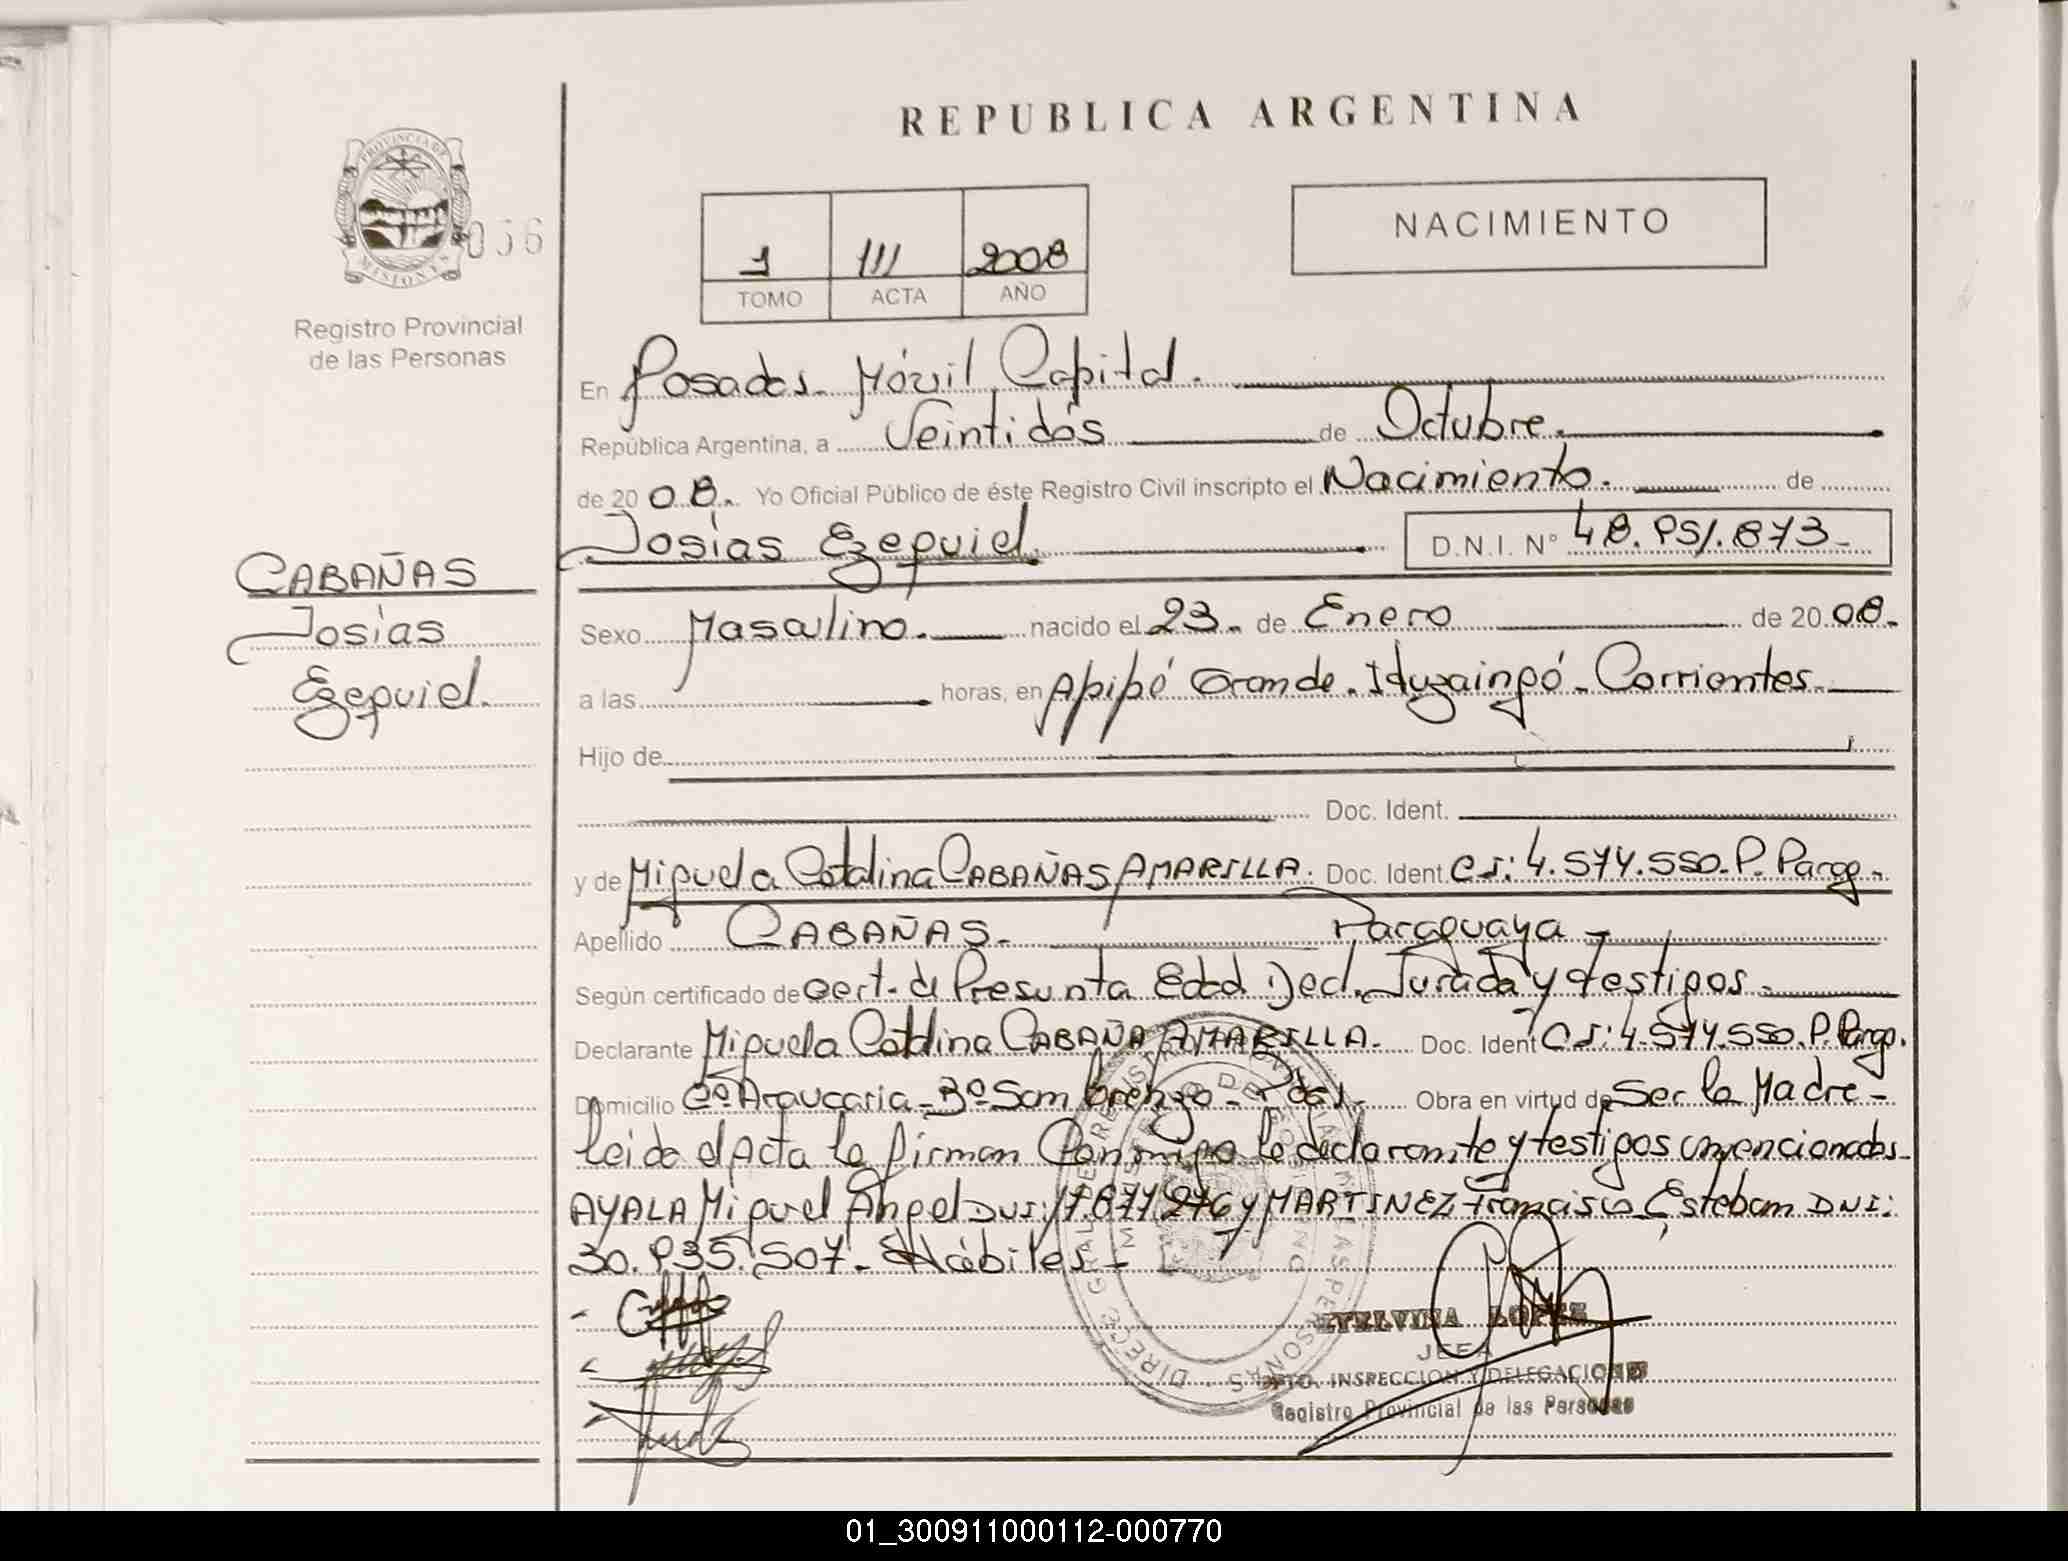 REPUBLICA ARGENTINA
PROVINCIA DE
MISIONES
056
Registro Provincial
de las Personas
1 111 2008
TOMO ACTA AÑO
NACIMIENTO
En Posadas- Móvil Capital.
República Argentina, a Veintidós de Octubre.
de 20 08. Yo Oficial Público de éste Registro Civil inscripto el Nacimiento. de
Josías Ezequiel D.N.I. N° 48.951.873-
CABAÑAS
Josías
Ezequiel.
Sexo Masculino. nacido el 23- de Enero de 20 08.
a las horas, en Apipé Grande. Ituzaingó- Corrientes.
Hijo de
Doc. Ident.
y de Miguela Catalina CABAÑAS AMARILLA. Doc. Ident. CI: 4.574.550. P. Parag-
Apellido CABAÑAS- Paraguaya-
Según certificado de Cert. de Presunta Edad Decl. Jurada y testigos.
Declarante Miguela Catalina CABAÑA AMARILLA. Doc. Ident CI: 4.574.550. P. Parag.
Domicilio Cº Araucaria- Bº San Lorenzo- Pdas. Obra en virtud de Ser la Madre-
leída el Acta la firman Conmigo la declarante y testigos
AYALA Miguel Angel DNI: 17.871.276 y MARTINEZ Francisco Esteban DNI:
30.935.507- Hábiles-
ETELVINA LOPEZ
JEFA
DPTO. INSPECCION Y DELEGACIONES
Registro Provincial de las Personas
01_300911000112-000770